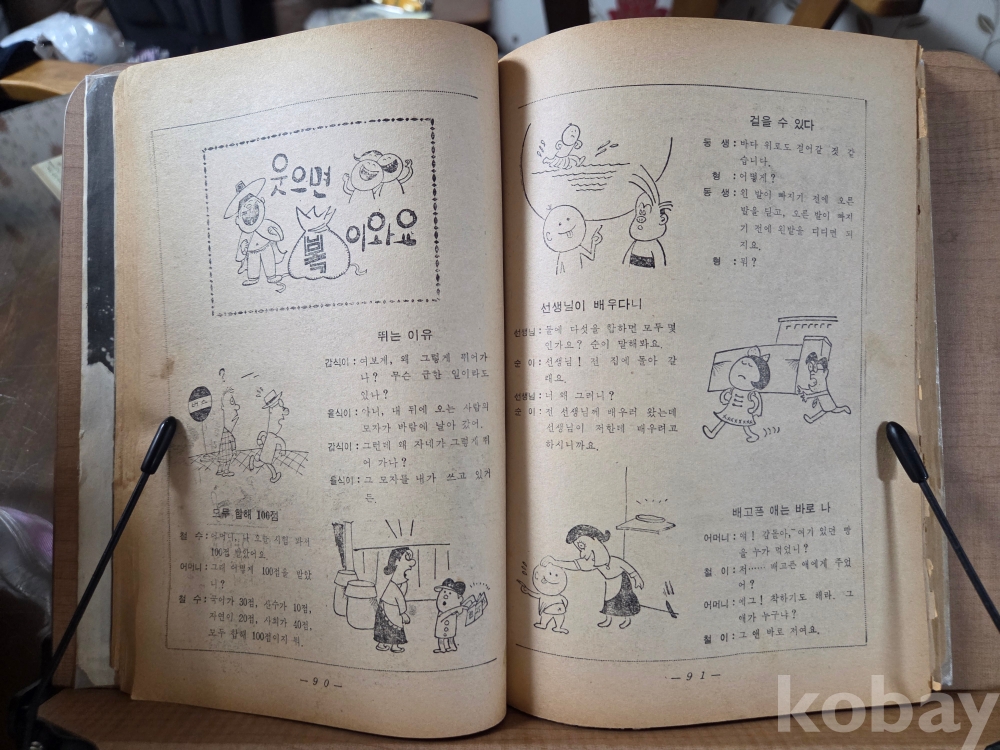 웃으면
복이와요
뛰는 이유
갑식이 : 여보게, 왜 그렇게 뛰어가
나? 무슨 급한 일이라도
있나?
을식이 : 아니, 내 뒤에 오는 사람의
모자가 바람에 날아 갔어.
갑식이 : 그런데 왜 자네가 그렇게 뛰
어 가나?
을식이 : 그 모자를 내가 쓰고 있거
든.
모두 합해 100점
철 수 : 어머니, 나 오늘 시험 봐서
100점 받았어요.
어머니 : 그래 어떻게 100점을 받았
니?
철 수 : 국어가 30점, 산수가 10점,
자연이 20점, 사회가 40점,
모두 합해 100점이지 뭐.
—90—
걸을 수 있다
동 생 : 바다 위로도 걸어갈 것 같
습니다.
형 : 어떻게?
동 생 : 왼 발이 빠지기 전에 오른
발을 딛고, 오른 발이 빠지
기 전에 왼발을 디디면 되
지요.
형 : 뭐?
선생님이 배우다니
선생님 : 둘에 다섯을 합하면 모두 몇
인가요? 순이 말해봐요.
순 이 : 선생님! 전 집에 돌아 갈
래요.
선생님 : 너 왜 그러니?
순 이 : 전 선생님께 배우러 왔는데
선생님이 저한테 배우려고
하시니까요.
배고픈 애는 바로 나
어머니 : 얘! 갑돌아, 여기 있던 빵
을 누가 먹었니?
철 이 : 저…… 배고픈 애에게 주었
어?
어머니 : 에그! 착하기도 해라. 그
애가 누구냐?
철 이 : 그 앤 바로 저여요.
—91—
kobay